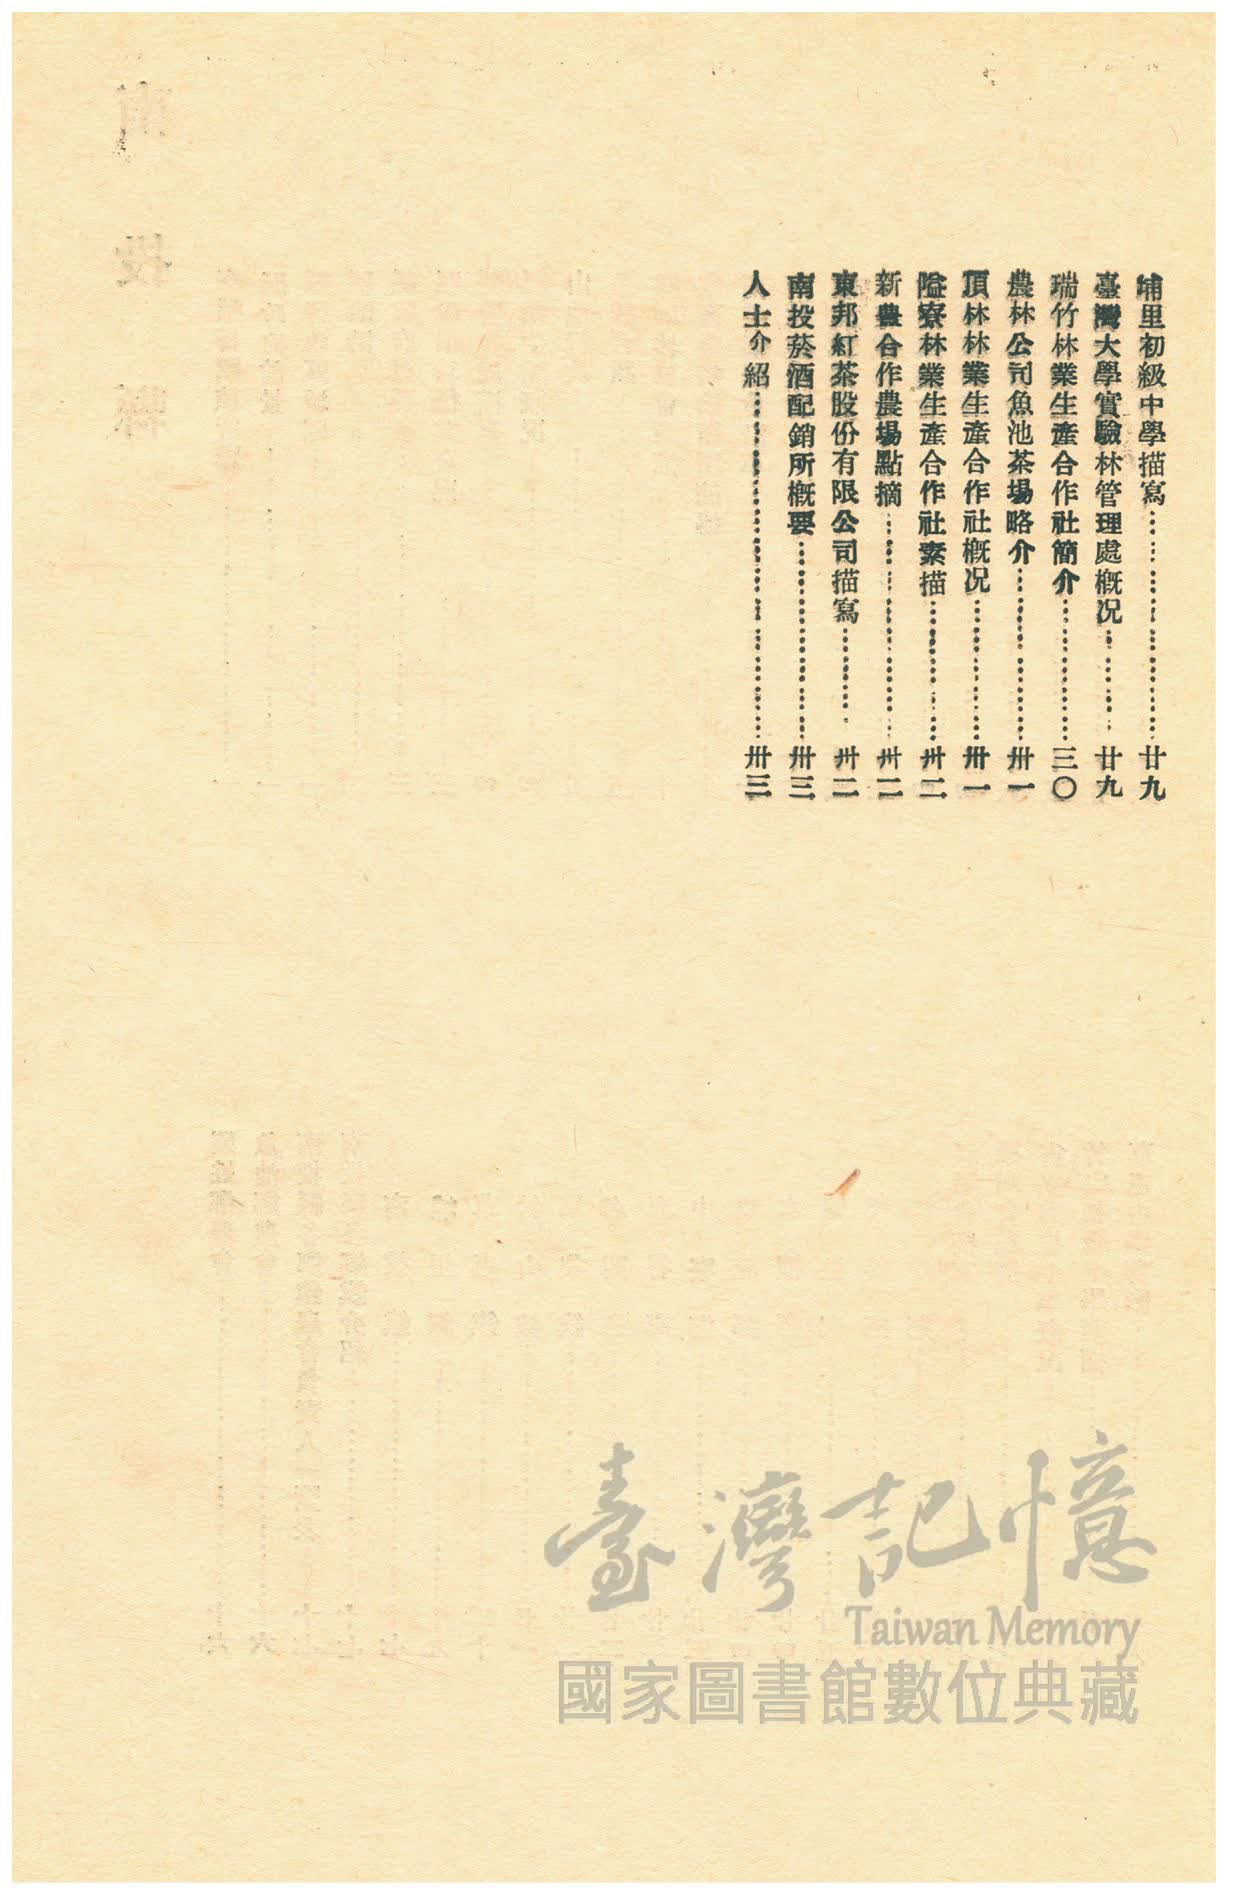 埔里初級中學描寫…………………廿九
臺灣大學實驗林管理處概況…………廿九
瑞竹林業生產合作社簡介……………三〇
農林公司魚池茶場略介………………卅一
頂林林業生產合作社概況……………卅一
隘寮林業生產合作社素描……………卅二
新農合作農場點摘……………………卅二
東邦紅茶股份有限公司描寫…………卅二
南投菸酒配銷所概要…………………卅三
人士介紹………………………………卅三
臺灣記憶
Taiwan Memory
國家圖書館數位典藏